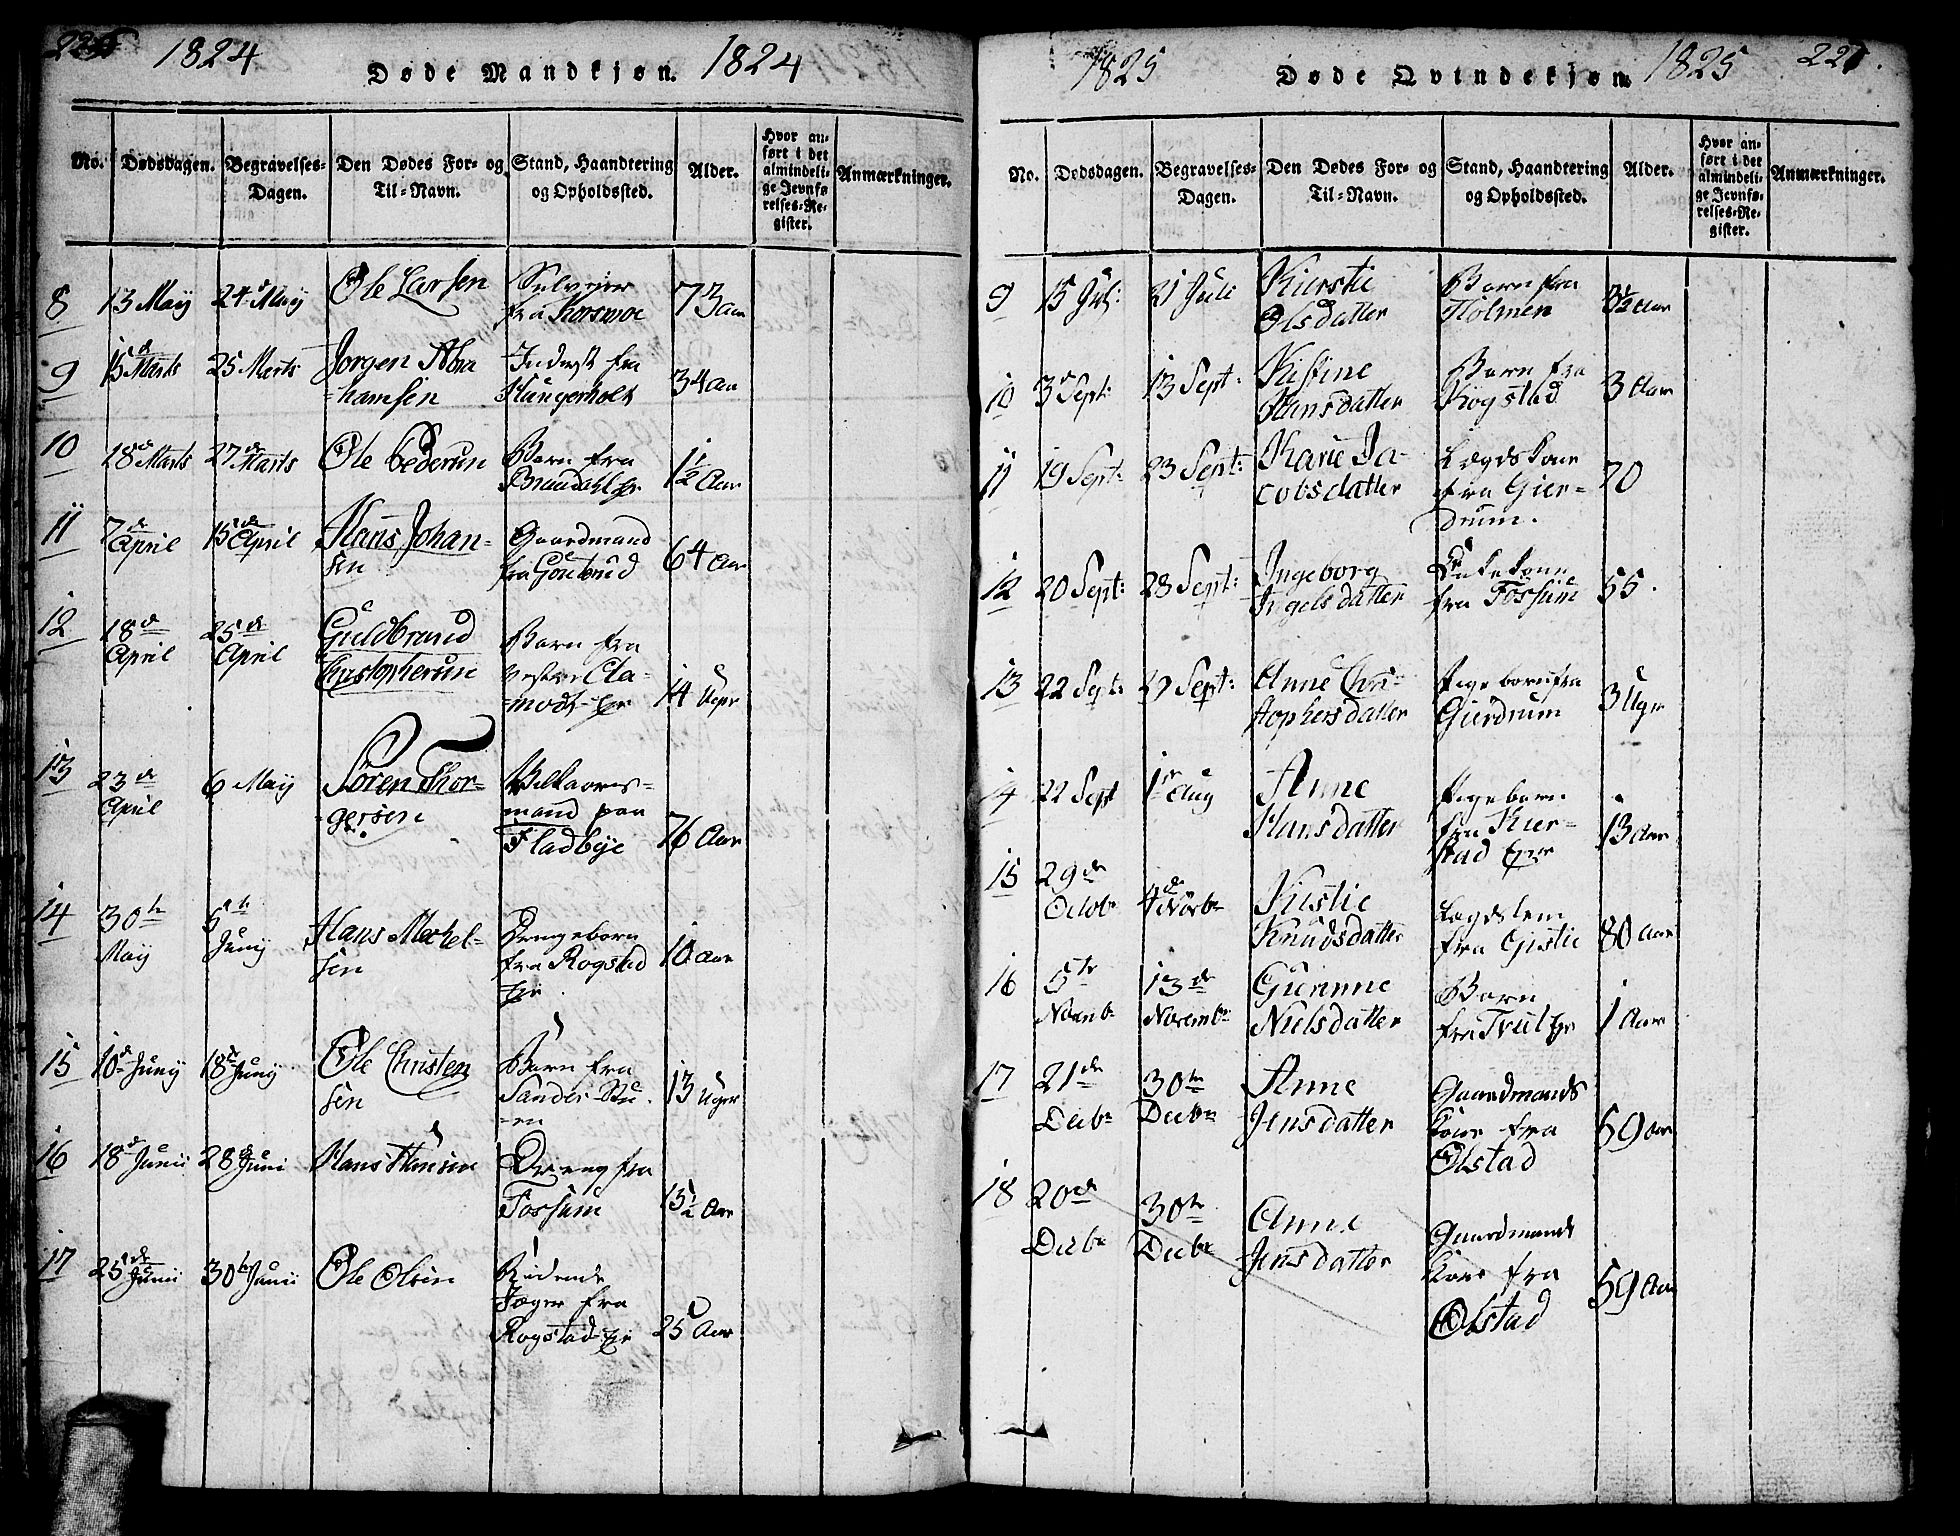 1824 Døde Mandkjøn. 1824
No. Dødsdagen. Begravelses-Dagen. Den Dødes For- og Til-Navn. Stand, Haandtering og Opholdssted. Alder. Hvor anført i det almindelige Jevnførelses-Register. Anmærkninger.
8 13 Maÿ 24 Maÿ Ole Larsen
fra Korsmoe 73 Aar
9 15 Marts 25 Merts Jorgen Abra
-hamsen Inderst fra
Hungerholt 34 Aar
10 18d Marts 27d Marts Ole Pedersen Barn fra
1½ Aar
11 7de April 15de April Hans Johan-
sen Gaardmand
fra 64 Aar
12 18de
April 25de
April Guldbrand
Christophersen Barn fra
vestre Ula-
modt Eje 14 Uger
13 23de
April 6 Maÿ Søren Thor-
gersen Vilkaars-
mand paa
Fladbÿe 76 Aar
14 30te
Maÿ 5te
Junÿ Hans Mechel-
sen Drengebarn
fra Rogstad
Eje 10 Aar
15 10de Junÿ 18de Junÿ Ole Christen
sen Barn fra
Sander Stu-
-en 13 Uger
16 18d Junii 28de Juni Hans Hansen Dreng fra
Fossum 15½ Aar
17 25de Junii 30te Junii Ole Olsen Ridende
Jæger fra
Rogstad Eje 25 Aar
1825 Døde Qvindekjøn 1825 221.
No. Dødsdagen. Begravelses-Dagen. Den Dødes For- og Til-Navn. Stand, Haandtering og Opholdssted. Alder. Hvor anført i det almindelige Jevnførelses-Register. Anmærkninger.
9 15 Jul: 21 Juli Kierstie
Olsdatter Barn fra
Holmen Aar
10 3d Sept: 13 Sept: Kistine
Hansdatter Barn fra
Kogstad 3 Aar
11 19 Sept: 23 Sept: Karie Ja-
cobsdatter Lægdskone
fra Gier-
drum. 70
12 20 Sept: 28 Sept: Ingeborg
Ingelsdatter Enkekone
fra Fossum 55.
13 22 Sept: 29 Sept: Anne Chri-
stophersdatter Pigebarn fra
Gierdrum 3 Uger
14 22 Sept 1te Aug Anne
Hansdatter Pigebarn
fra Kier-
stad Eje 13 Aar
15 29de
Octobr 4de Novbr Kistie
Knudsdatter Lægdslem
fra Gistie 80 Aar
16 5te
Novembr 13de
Novembr Gurinne
Nielsdatter Barn
fra Truls Eje 1 Aar
17 21de
Decbr 30te
Decbr Anne
Jensdatter Gaardmands
Kone fra
Ølstad 59 Aar
18 20de
Decbr 30te
Decbr Anne
Jensdatter Gaardmands
Kone fra
Ølstad 59 Aar